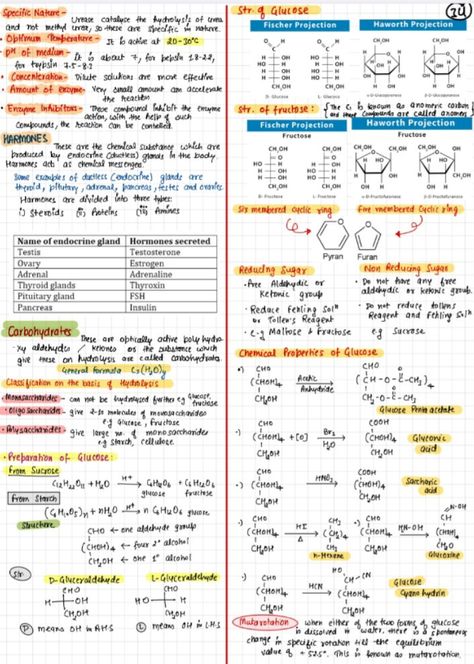 Specific Nature - Urease catalyse the hydrolysis of urea
and not methyl urea, so these are specific in nature.
Optimum Temperature - It is active at 20-30°C
pH of medium - It is about 7, for pepsin 1.8-2.2,
for trypsin 7.5-8.3
• Concentration - Dilute solutions are more effective
• Amount of enzyme - Very small amount can accelerate
the reaction
• Enzyme Inhibitors - These compound inhibit the enzyme
action, with the help of such
compounds, the reaction can be controlled.
HARMONES
These are the chemical substance which are
produced by endocrine (ductless) glands in the body.
Harmones act as chemical messengers.
Some examples of ductless (endocrine) glands are
thyroid, pitutary, adrenal, pancreas, testes and ovaries.
Harmones are divided into three types:
i) Steroids (ii) Proteins (iii) Amines
Name of endocrine gland Hormones secreted
Testis Testosterone
Ovary Estrogen
Adrenal Adrenaline
Thyroid glands Thyroxin
Pituitary gland FSH
Pancreas Insulin
Carbohydrates
These are optically active poly hydro-
xy aldehydes / ketones or the substance which
give these on hydrolysis are called carbohydrate.
General formula
Classification on the basis of Hydrolysis
• Monosaccharides - can not be hydrolysed further e.g Glucose,
fructose
• Oligosaccharides - give 2-10 molecules of monosaccharides
e.g Glucose, Fructose
• Polysaccharides - give large no. of monosaccharides
e.g starch, cellulose.
• Preparation of Glucose:
From Sucrose
C12H22O11 + H2O H+ C6H12O6 + C6H12O6
glucose fructose
From Starch
(C6H10O5)n + nH2O H+ n C6H12O6 glucose
Structure
CHO ← one aldehyde group
(CHOH)4 ← four 2° alcohol
CH2OH ← one 1° alcohol
Str:
D-Gluceraldehyde L-Gluceraldehyde
CHO CHO
H OH HO H
CH2OH CH2OH
D means OH in R.H.S L means OH in L.H.S
Str. of Glucose
Fischer Projection Haworth Projection
D-Glucose L-Glucose
Str. of fructose: The C1 is known as anomeric carbon
and these compounds are called anomers
Fischer Projection Haworth Projection
Fructose Fructose
D-Fructose L-Fructose
Six membered cyclic ring Five membered cyclic ring
Pyran Furan
Reducing Sugar Non Reducing Sugar
• Free Aldehydic or
Ketonic group
• Reduce Fehling Solⁿ
or Tollen's Reagent
• e.g Maltose & Fructose
• Do not have any free
aldehydic or ketonic group.
• Do not reduce tollens
Reagent and Fehling Solⁿ
e.g Sucrose
Chemical Properties of Glucose
•) CHO
(CHOH)4
CH2OH
Acetic
Anhydride
CHO
(CH-O-C-CH3)4
CH2-O-C-CH3
Glucose Penta acetate
•) CHO
(CHOH)4 + [O]
CH2OH
Br2
H2O
COOH
(CHOH)4
CH2OH
Gluconic
acid
CHO
(CHOH)4
CH2OH
COOH
(CHOH)4
COOH
Saccharic
acid
•) CHO
(CHOH)4
CH2OH
HI
Δ
CH3
(CH2)4
CH3
n-Hexane
CHO
(CHOH)4
CH2OH
CH=N-OH
(CHOH)4
CH2OH
Glucoxime
•) CHO
(CHOH)4
CH2OH
HCN
(CHOH)4
CH2OH
Glucose
Cyano hydrin
Mutarotation when either of the two forms of glucose
is dissolved in water, there is a spontaneous
change in specific rotation till the equilibrium
value of + 52.5°. This is known as mutarotation.